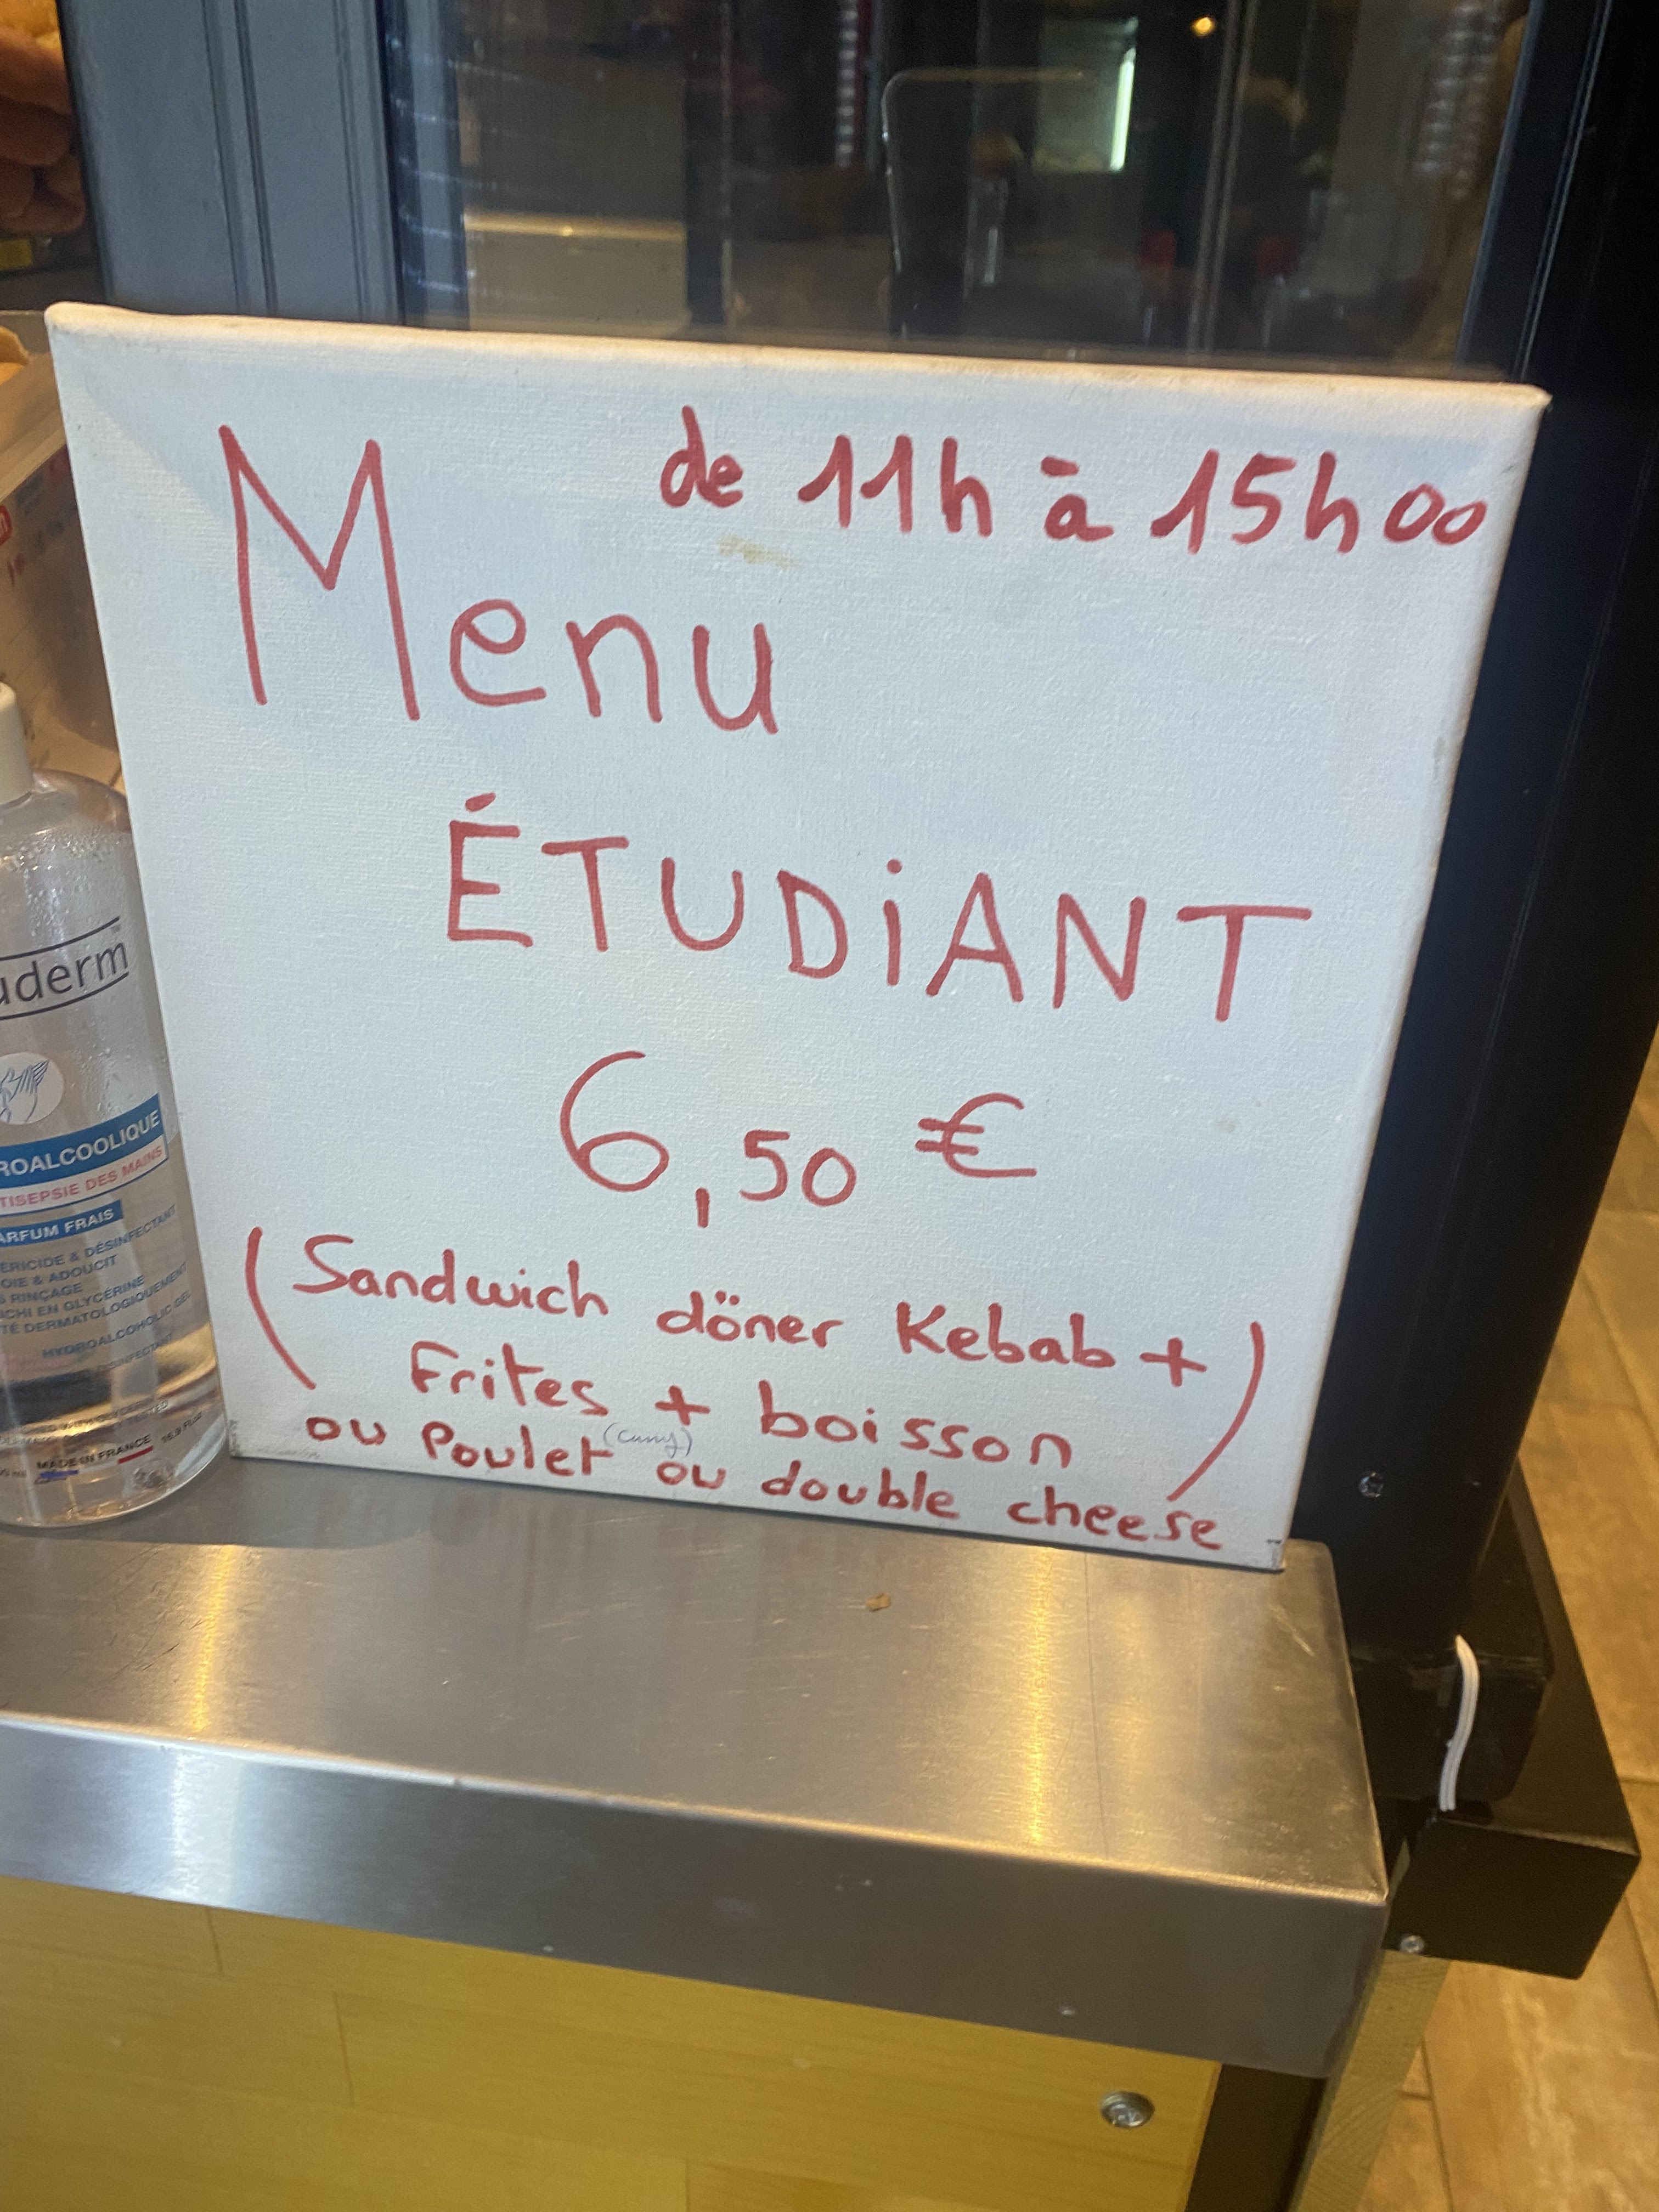 de 11h à 15h00
Menu
ÉTUDiANT
6,50 €
(Sandwich döner Kebab +
Frites + boisson)
ou Poulet (curry) ou double cheese
uderm
ROALCOOLIQUE
TISEPSIE DES MAINS
ARFUM FRAIS
ERICIDE & DÉSINFECTANT
OIE & ADOUCIT
RINÇAGE
CHI EN GLYCÉRINE
TÉ DERMATOLOGIQUEMENT
HYDROALCOHOLIC GEL
MADE IN FRANCE